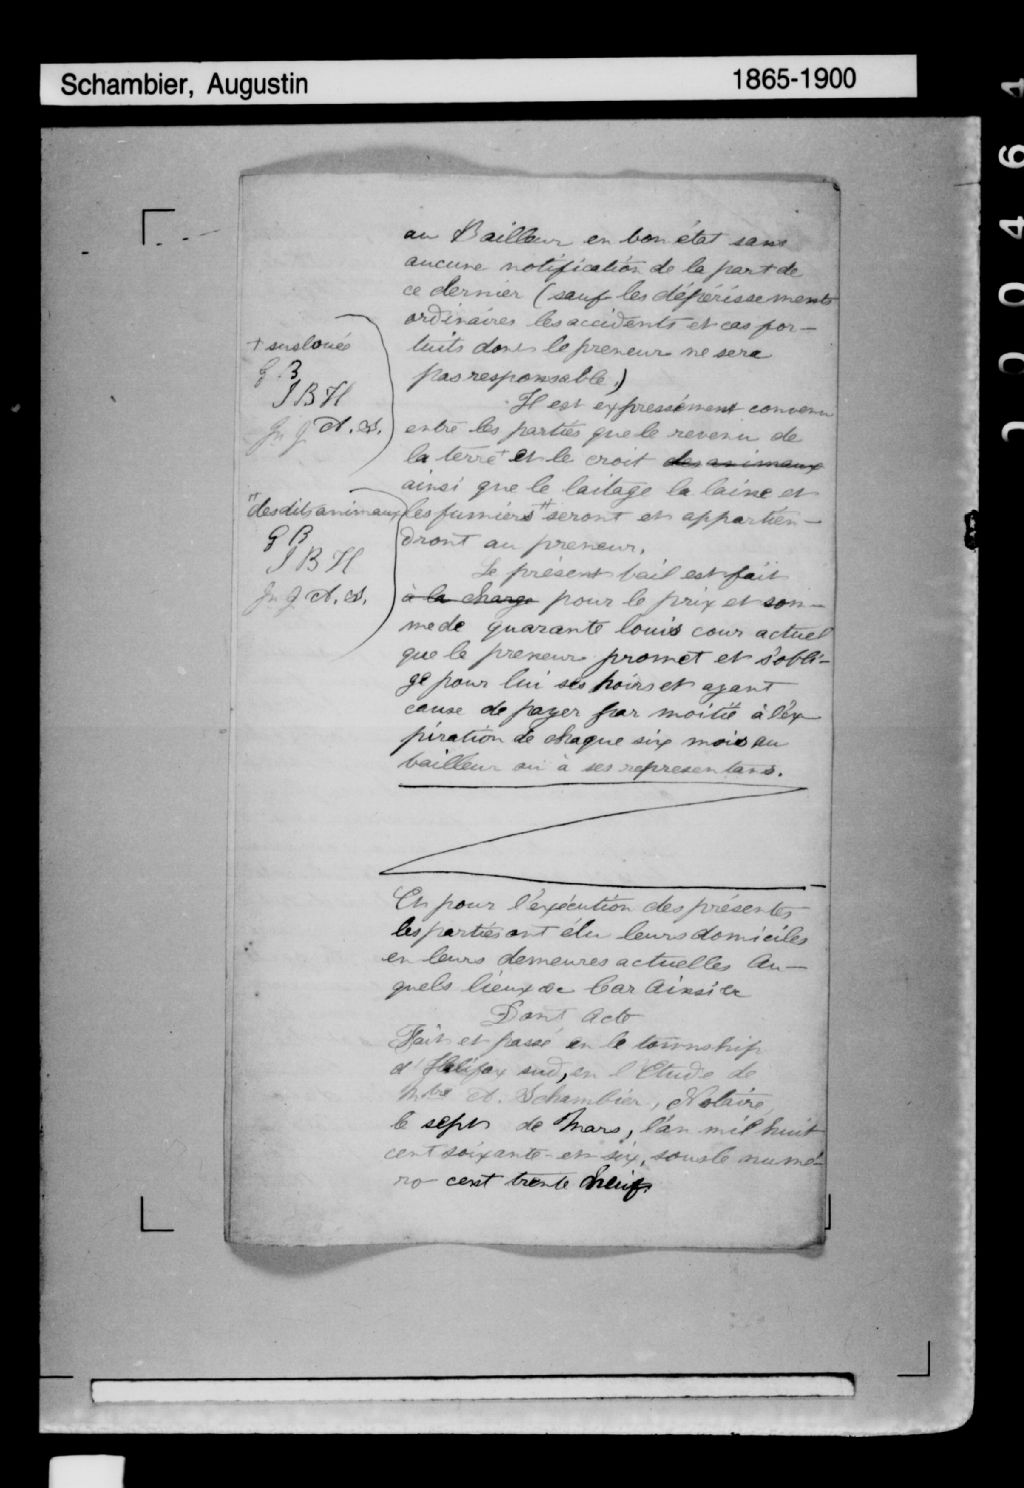 Schambier, Augustin 1865-1900
au Bailleur en bon état sans
aucune notification de la part de
ce dernier (sauf les dépérissements
ordinaires les accidents et cas for-
tuits dont le preneur ne sera
pas responsable.)
Il est expressément convenu
entre les parties que le revenu de
la terre + et le croit des animaux
ainsi que le laitage la laine et
les fumiers # seront et appartien-
dront au preneur.
Le présent bail est fait
à la charge pour le prix et som-
me de quarante louis cour actuel
que le preneur promet et s'obli-
ge pour lui ses hoirs et ayant
cause de payer par moitié à l'ex
piration de chaque six mois au
bailleur ou à ses representans.
+ susloués
G B
J B H
A. S.
" desdits animaux
G B
J B H
A. S.
Et pour l'exécution des présentes
les parties ont élu leurs domiciles
en leurs demeures actuelles Au-
quels lieux &c Car Ainsi &c
Dont Acte
Fait et passé en le township
d'Halifax sud, en l'Etude de
Mtre A. Schambier, Notaire,
le sept de Mars, l'an mil huit
cent soixante-et-six, sous le numé-
ro cent trente neuf.
0 0 4 6 4